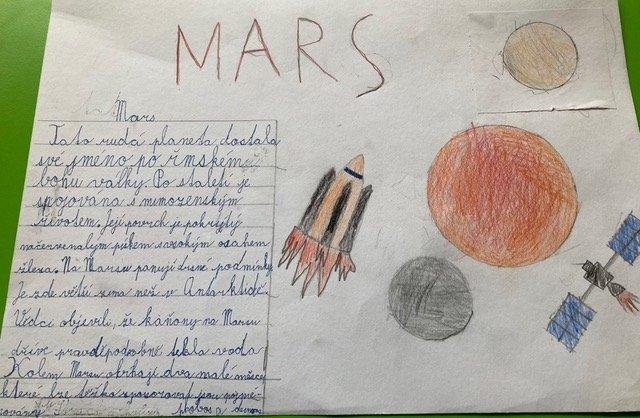 MARS
Mars
Tato rudá planeta dostala
své jméno po římskému
bohu války. Po staletí je
spojována s mimozenským
životem. Její povrch je pokrytý
načervenalým pískem s vysokým osahem
železa. Na Marsu panují drsné podmínky
Je zde větší zima než v Antarktidě.
Vědci objevili, že kaňony na Marsu
dříve pravděpodobně tekla voda
Kolem Marsu obíhají dva malé měsíce
které lze těžko zpozorovat jsou pojme-
novány phobos a deimos